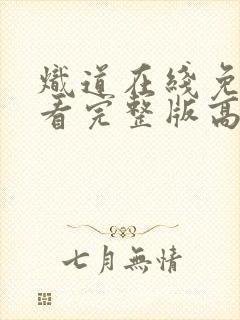 熾道在綫免
看完整版高
七月無情